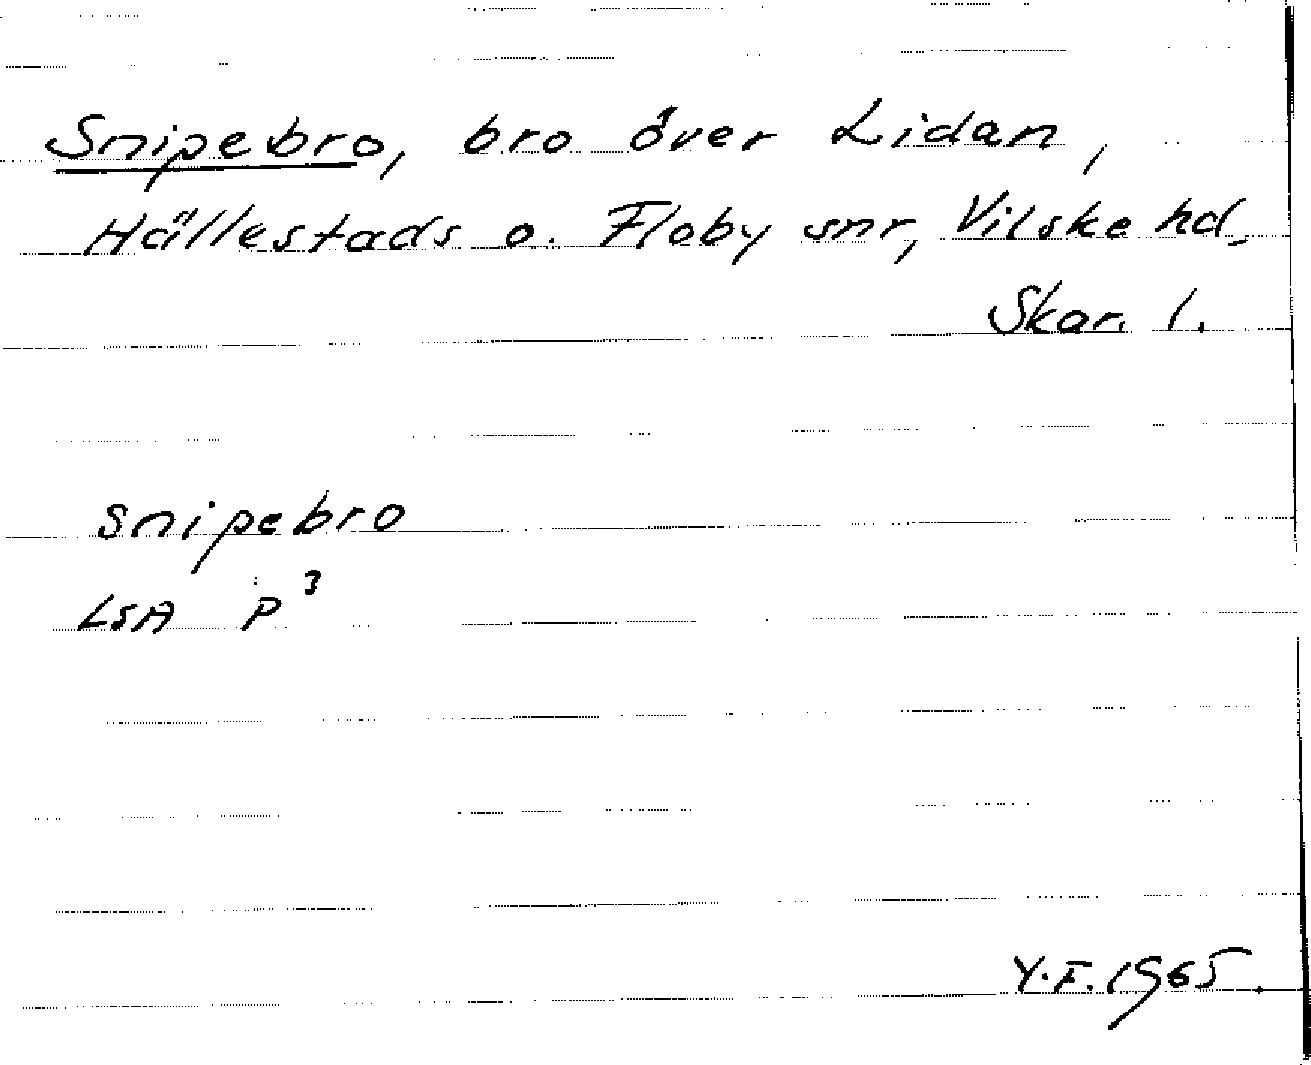 Snipebro, bro över Lidan,
Hällestads o. Floby snr, Vilske hd,
Skar. l.
snipebro
LSA P³
Y.F. 1965.